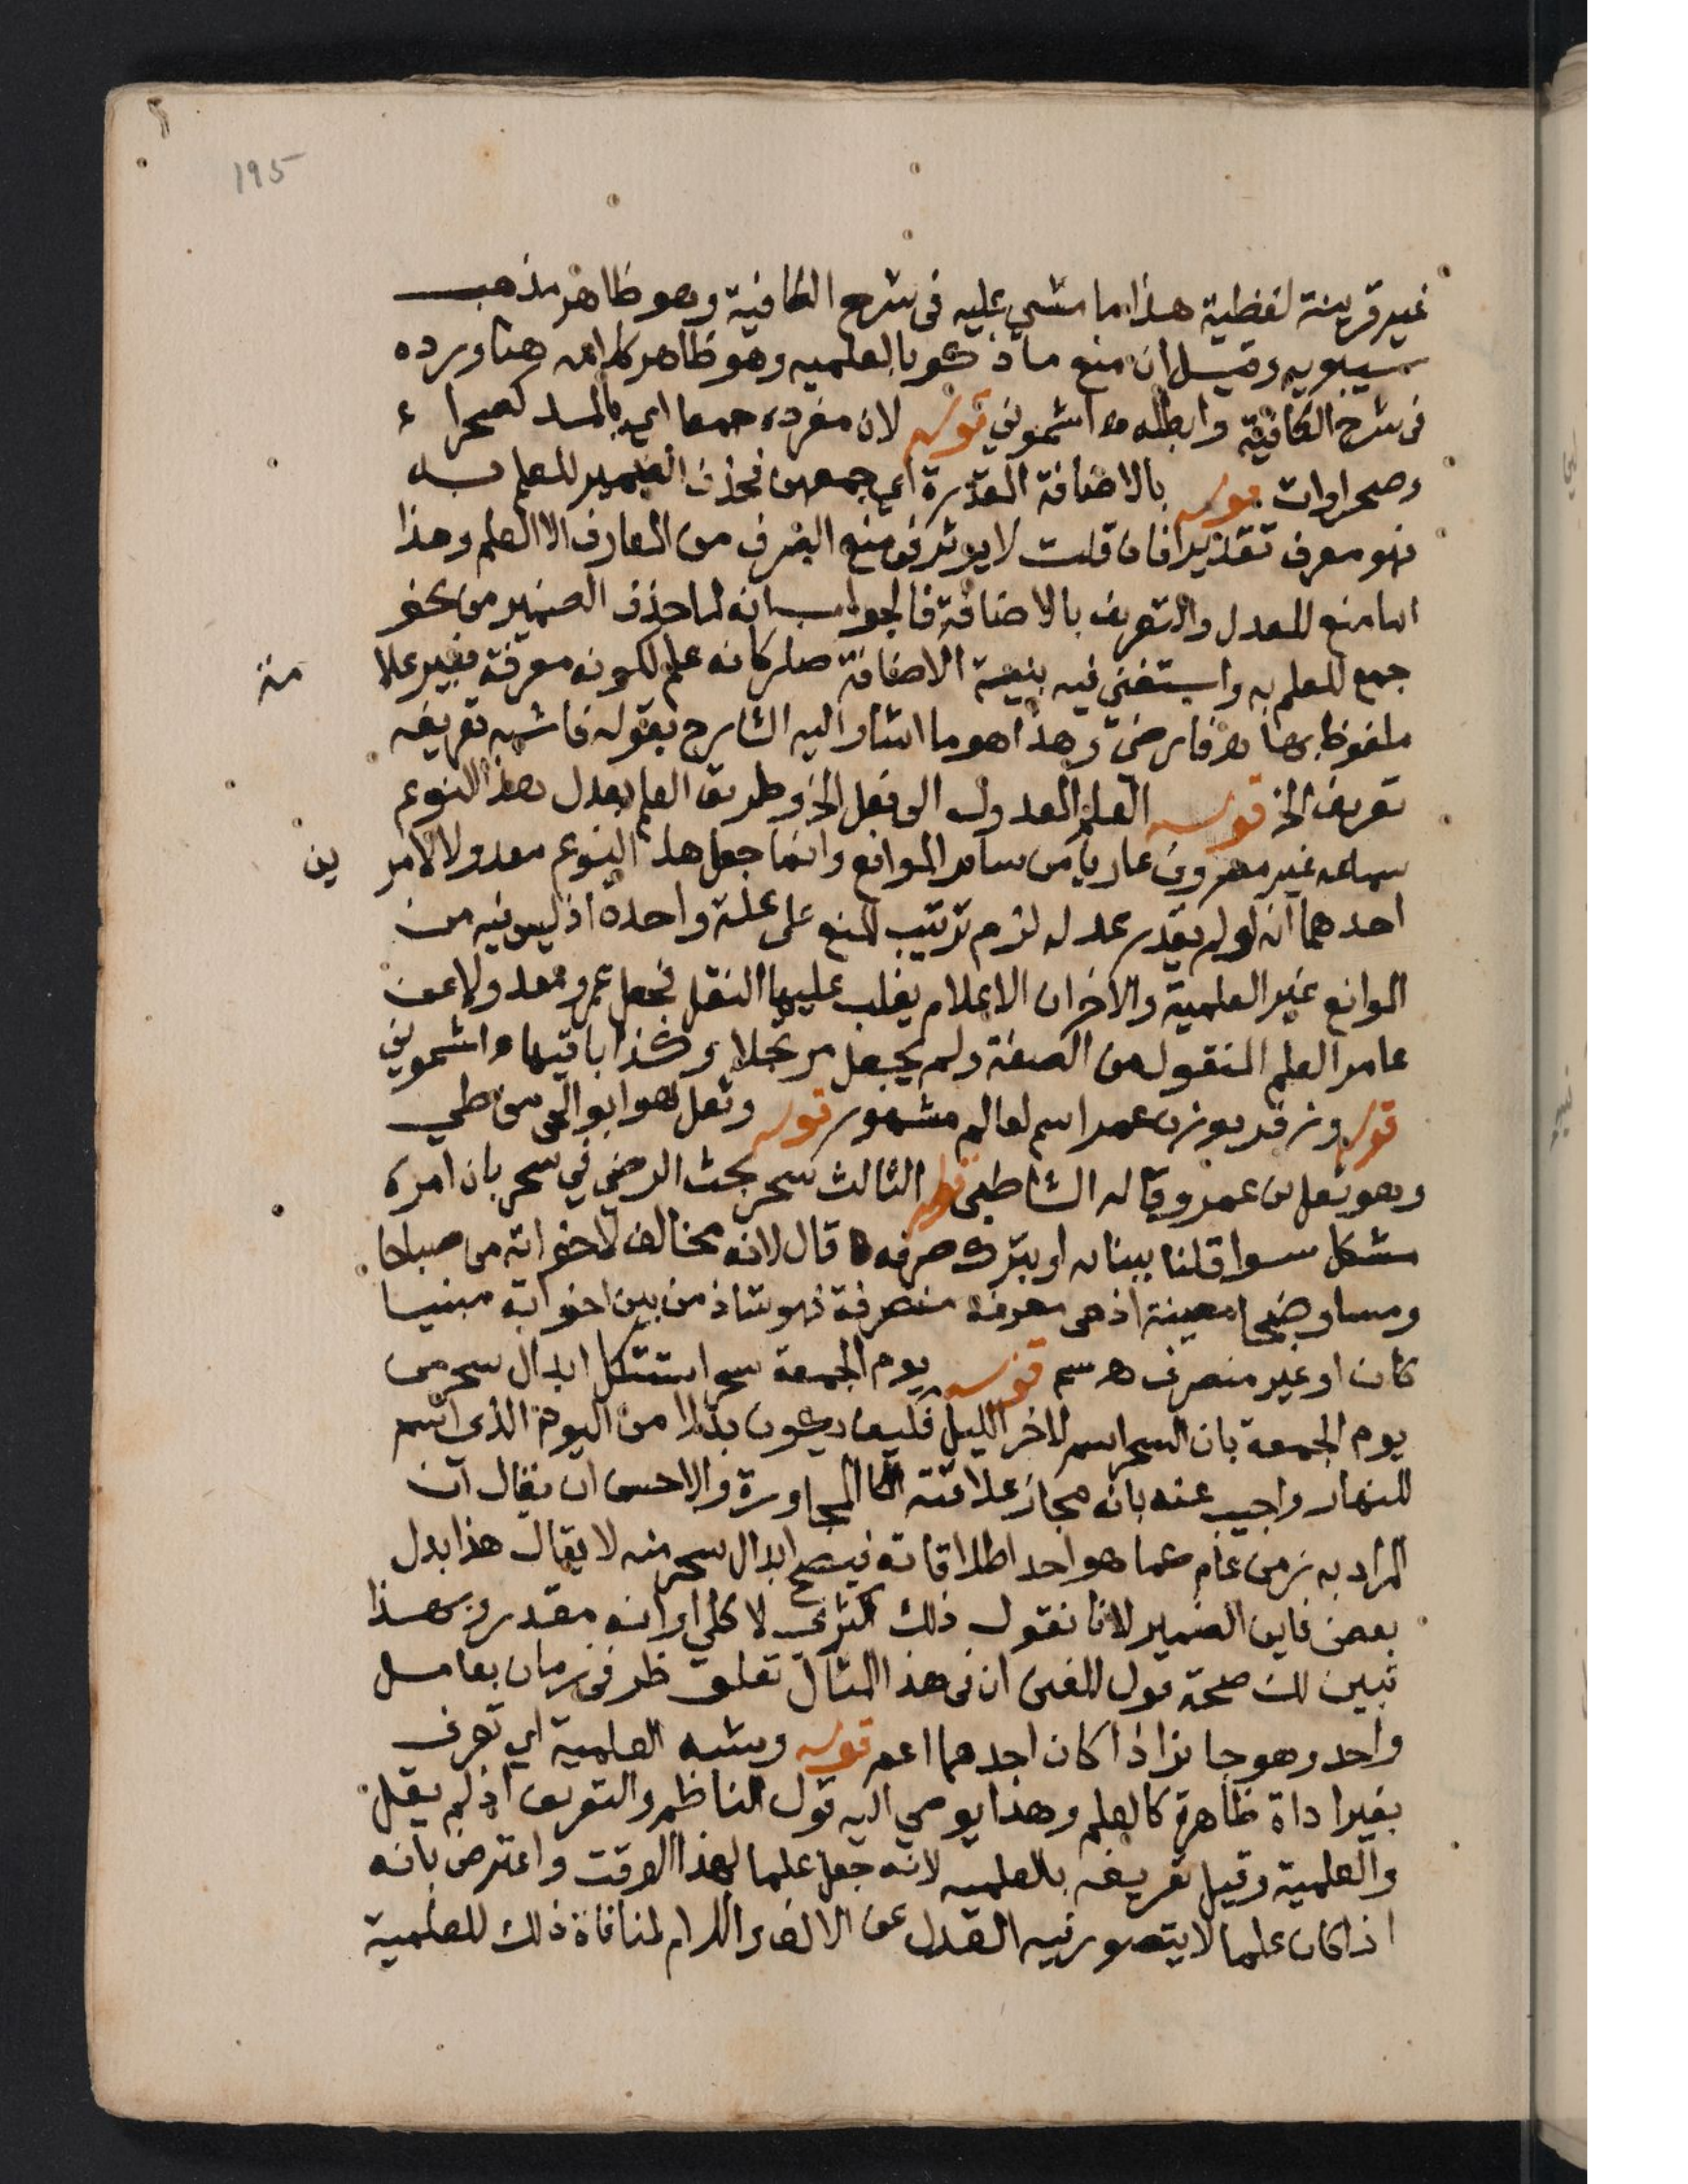 195
غير قرينة لفظية هذا ما مشي عليه فى شرح الكافية وهو ظاهر مذهب
سيبويه وقيل ان منع ما ذكر بالعلميه وهو ظاهر كلامه هنا ورده
فى شرح الكافية وابطله اشموني قوله لان مفرده جمعا اي بالمد كصحراء
وصحراوات قوله بالاضافة المقدرة اي جمعهن فحذف الضمير للعلم به
فهو معرف تقديرا فان قلت لا يوثر فى منع الصرف من المعارف الا العلم وهذا
انما منع للعدل والتعريف بالاضافة فالجواب انه لما حذف الضمير من نحو
جمع للعلم به واستغنى فيه بنية الاضافة صار كانه علم لكونه معرفة بغير علامة
ملفوظ بها فارضى وهذا هو ما اشار اليه الشارح بقوله فاشبه تعريفه
تعريف الخ قوله العلم المعدول الى فعل الخ وطريق العلم بعدل هذا النوع
سماعه غير مصروف عاريا من سائر الموانع وانما جعل هذا النوع معدولا لامرين
احدهما انه لو لم يقدر عدله لزم ترتيب المنع على علة واحدة اذ ليس فيه من
الموانع غير العلمية والاخر ان الاعلام يغلب عليها النقل فجعل عمر معدولا عن
عامر العلم المنقول من الصفة ولم يجعل مرتجلا وكذا باقيها اشموني
قوله وزفر بوزن عمر اسم لعالم مشهور قوله وثعل هو ابو الحى من طي
وهو ثعل بن عمرو قاله الشاطبى قوله الثالث سحر بحث الرضى في سحر بان امره
مشكل سوا قلنا ببنائه او بترك صرفه قال لانه مخالف لاخواته من صباحا
ومسا وضحى معينة اذ هى معرفة منصرفة فهو شاذ من بين اخواته مبنيا
كان او غير منصرف ه سم قوله يوم الجمعة سحر استشكل ابدال سحر من
يوم الجمعة بان السحر اسم لاخر الليل فكيف يكون بدلا من اليوم الذى اسم
للنهار واجيب عنه بانه مجاز علاقته المجاورة والاحسن ان يقال ان
المراد به زمن عام عما هو احد اطلاقاته فيصح ابدال سحر منه لا يقال هذا بدل
بعض فاين الضمير لانا نقول ذلك اكثري لا كلي او انه مقدر وبهذا
تبين لك صحة قول المغنى ان فى هذا المثال تعلق ظرفى زمان بعامل
واحد وهو جائز اذا كان احدهما اعم قوله ويشبه العلمية اي تعرف
بغير اداة ظاهرة كالعلم وهذا يومي اليه قول الناظم والتعريف اذ لم يقل
والعلمية وقيل تعريفه بالعلميه لانه جعل علما لهذا الوقت واعترض بانه
اذا كان علما لا يتصور فيه العدل عن الالف واللام لمنافاة ذلك للعلمية